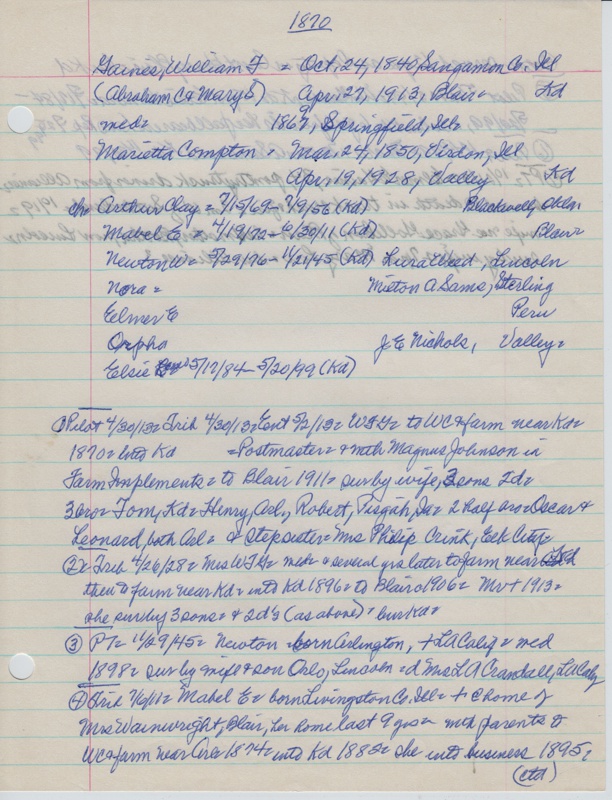 1870
Gaines, William F = Oct, 24, 1840, Sangamon Co. Ill
(Abraham C & Mary S) Apr. 27, 1913, Blair = Kd
med = 1867, Springfield, Ill =
Marietta Compton = Mar. 24, 1850, Virden, Ill
Apr, 19, 1928, Valley Kd
ch = Arthur Clay = 2/15/69 - 3/9/56 (Kd) Blackwell, Okla
Mabel E = 4/19/72 - 6/30/11 (Kd) Blair
Newton W = 5/29/76 - 11/21/45 (Kd) Lura Weed, Lincoln
Nora = Milton A Sams, Sterling
Elmer E Peru
Orpha J E Nichols, Valley =
Elsie 5/17/84 - 5/20/99 (Kd)
① Pilot 4/30/13 = Trib 4/30/13 = Ent 5/2/13 = WFG = to WC & farm near Kd =
1870 = into Kd = Postmaster = & with Magnus Johnson in
Farm Implements = to Blair 1911 = sur by wife, 3 sons 2d =
3 bro = Tom, Kd = Henry, Arl, Robert, Pisgah, Ia = 2 half bro = Oscar &
Leonard, both Arl = & stepsister = Mrs Philip Crink, Elk City =
② = Trib 4/26/28 = Mrs WFG = med = & several yrs later to farm near
then to farm near Kd = into Kd 1896 = to Blair 1906 = Mr + 1913 =
she sur by 3 sons = & 2d's (as above) = bur Kd =
③ PT = 11/29/45 = Newton = born Arlington, + LA Calif = med
1898 = sur by wife & son Orlo, Lincoln = d Mrs LA Crandall, LA Calif
④ Trib 7/6/11 = Mabel E = born Livingston Co. Ill = + @ home of
Mrs Wainwright, Blair, her home last 9 yrs = with parents to
WC & farm near Arl = 1874 = into Kd 1882 = she into business 1895 =
(ctd)